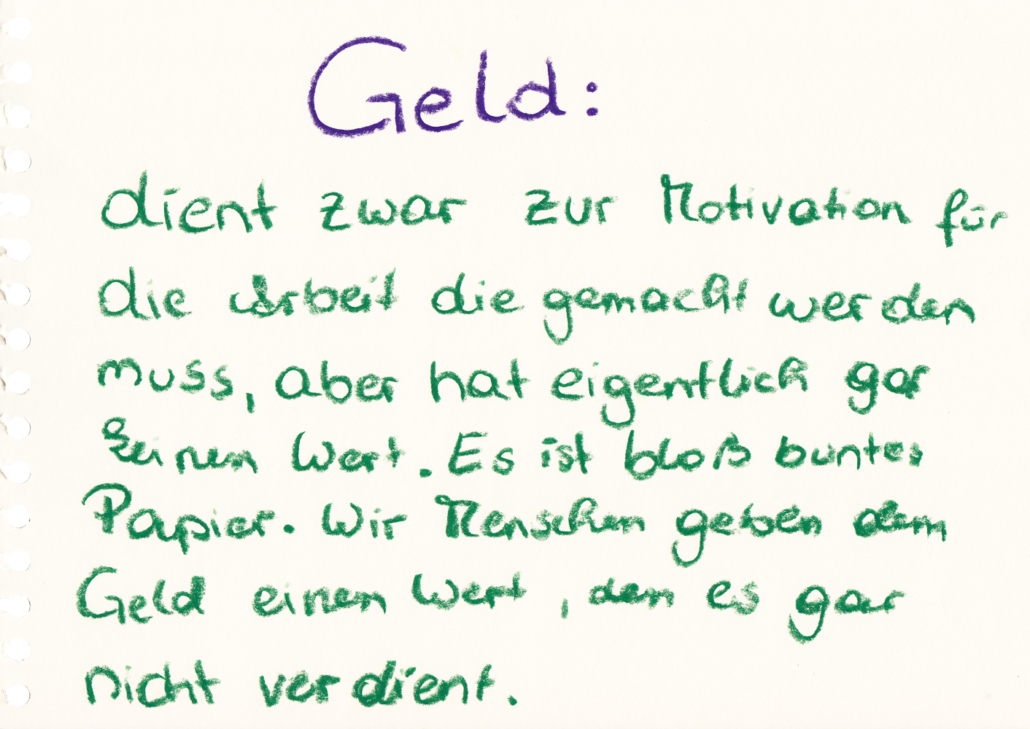 Geld:
dient zwar zur Motivation für
die Arbeit die gemacht werden
muss, aber hat eigentlich gar
keinen Wert. Es ist bloß buntes
Papier. Wir Menschen geben dem
Geld einen Wert, den es gar
nicht verdient.